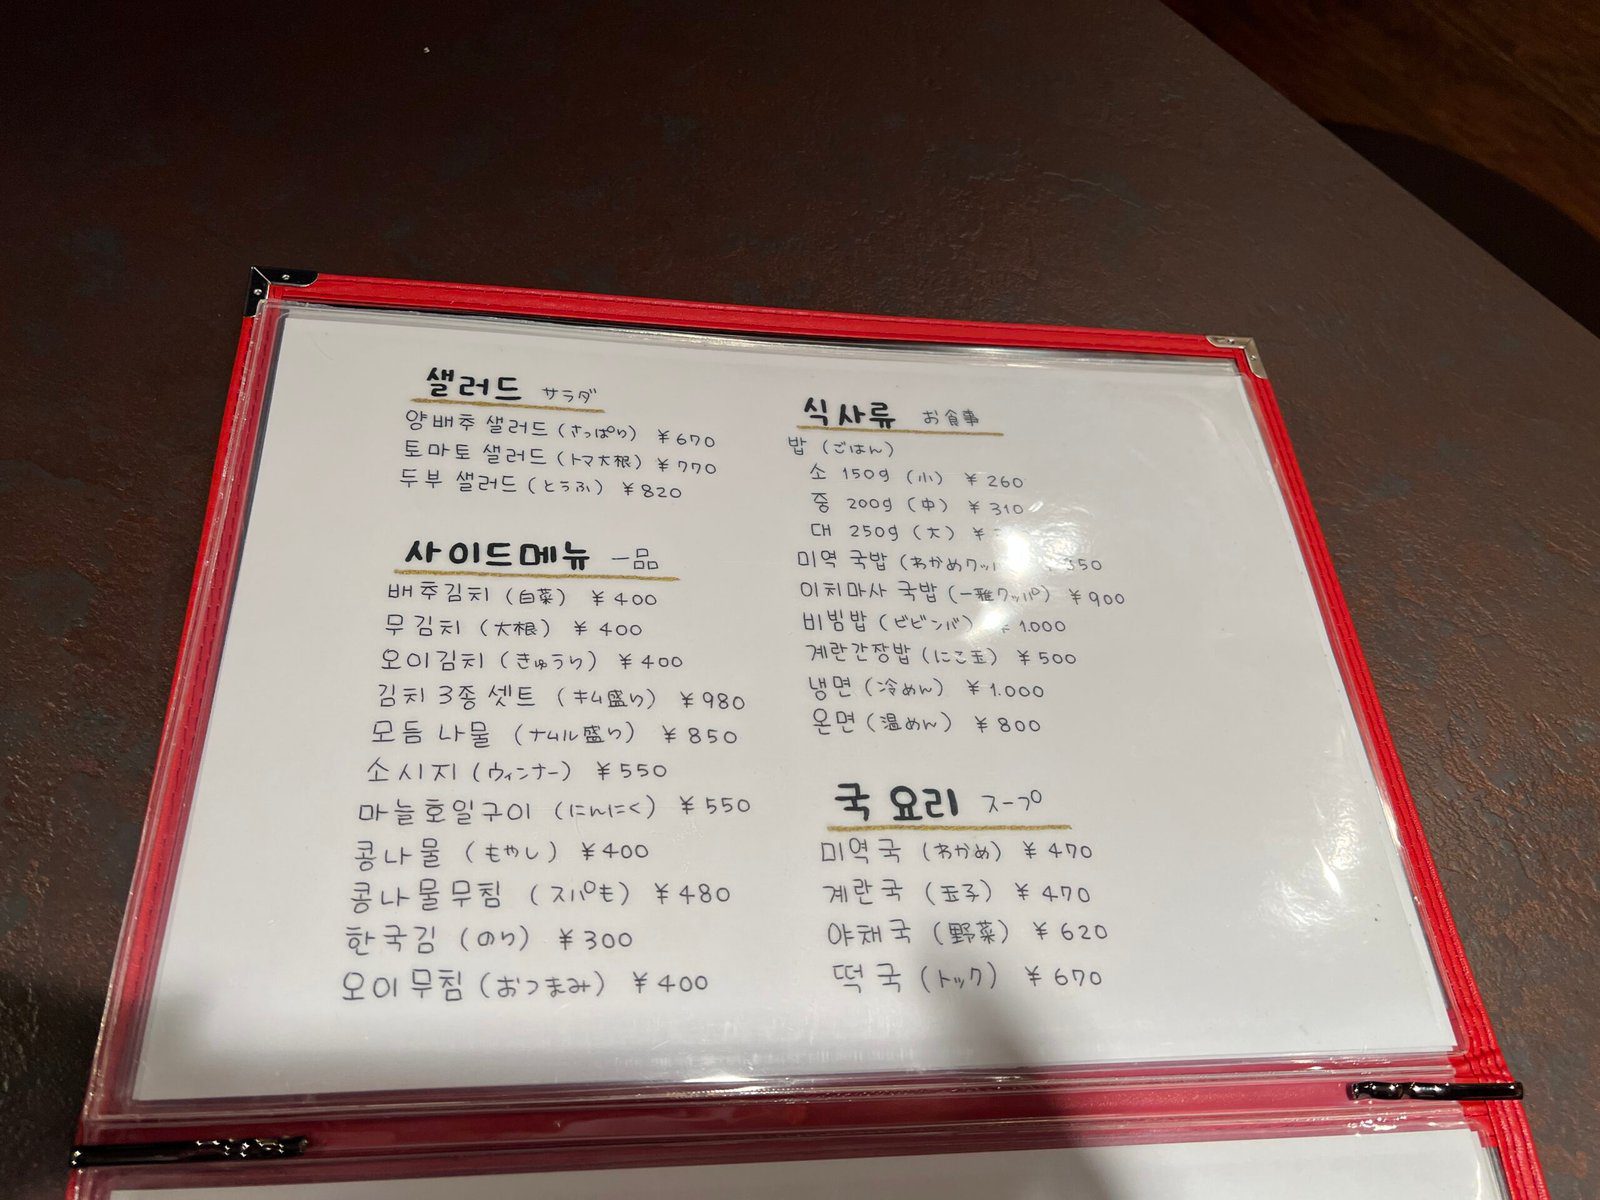 샐러드 サラダ
양배추 샐러드 (さっぱり) ¥670
토마토 샐러드 (トマ大根) ¥770
두부 샐러드 (とうふ) ¥820
사이드메뉴 一品
배추김치 (白菜) ¥400
무김치 (大根) ¥400
오이김치 (きゅうり) ¥400
김치 3종 셋트 (キム盛り) ¥980
모듬 나물 (ナムル盛り) ¥850
소시지 (ウィンナー) ¥550
마늘호일구이 (にんにく) ¥550
콩나물 (もやし) ¥400
콩나물무침 (スパもも) ¥480
한국김 (のり) ¥300
오이무침 (おつまみ) ¥400
식사류 お食事
밥 (ごはん)
소 150g (小) ¥260
중 200g (中) ¥310
대 250g (大) ¥
미역 국밥 (わかめクッ
이치마사 국밥 (一雅クッパ) ¥900
비빔밥 (ビビンバ) ¥1.000
계란간장밥 (にこ玉) ¥500
냉면 (冷めん) ¥1.000
온면 (温めん) ¥800
국 요리 スープ
미역국 (わかめ) ¥470
계란국 (玉子) ¥470
야채국 (野菜) ¥620
떡국 (トック) ¥670